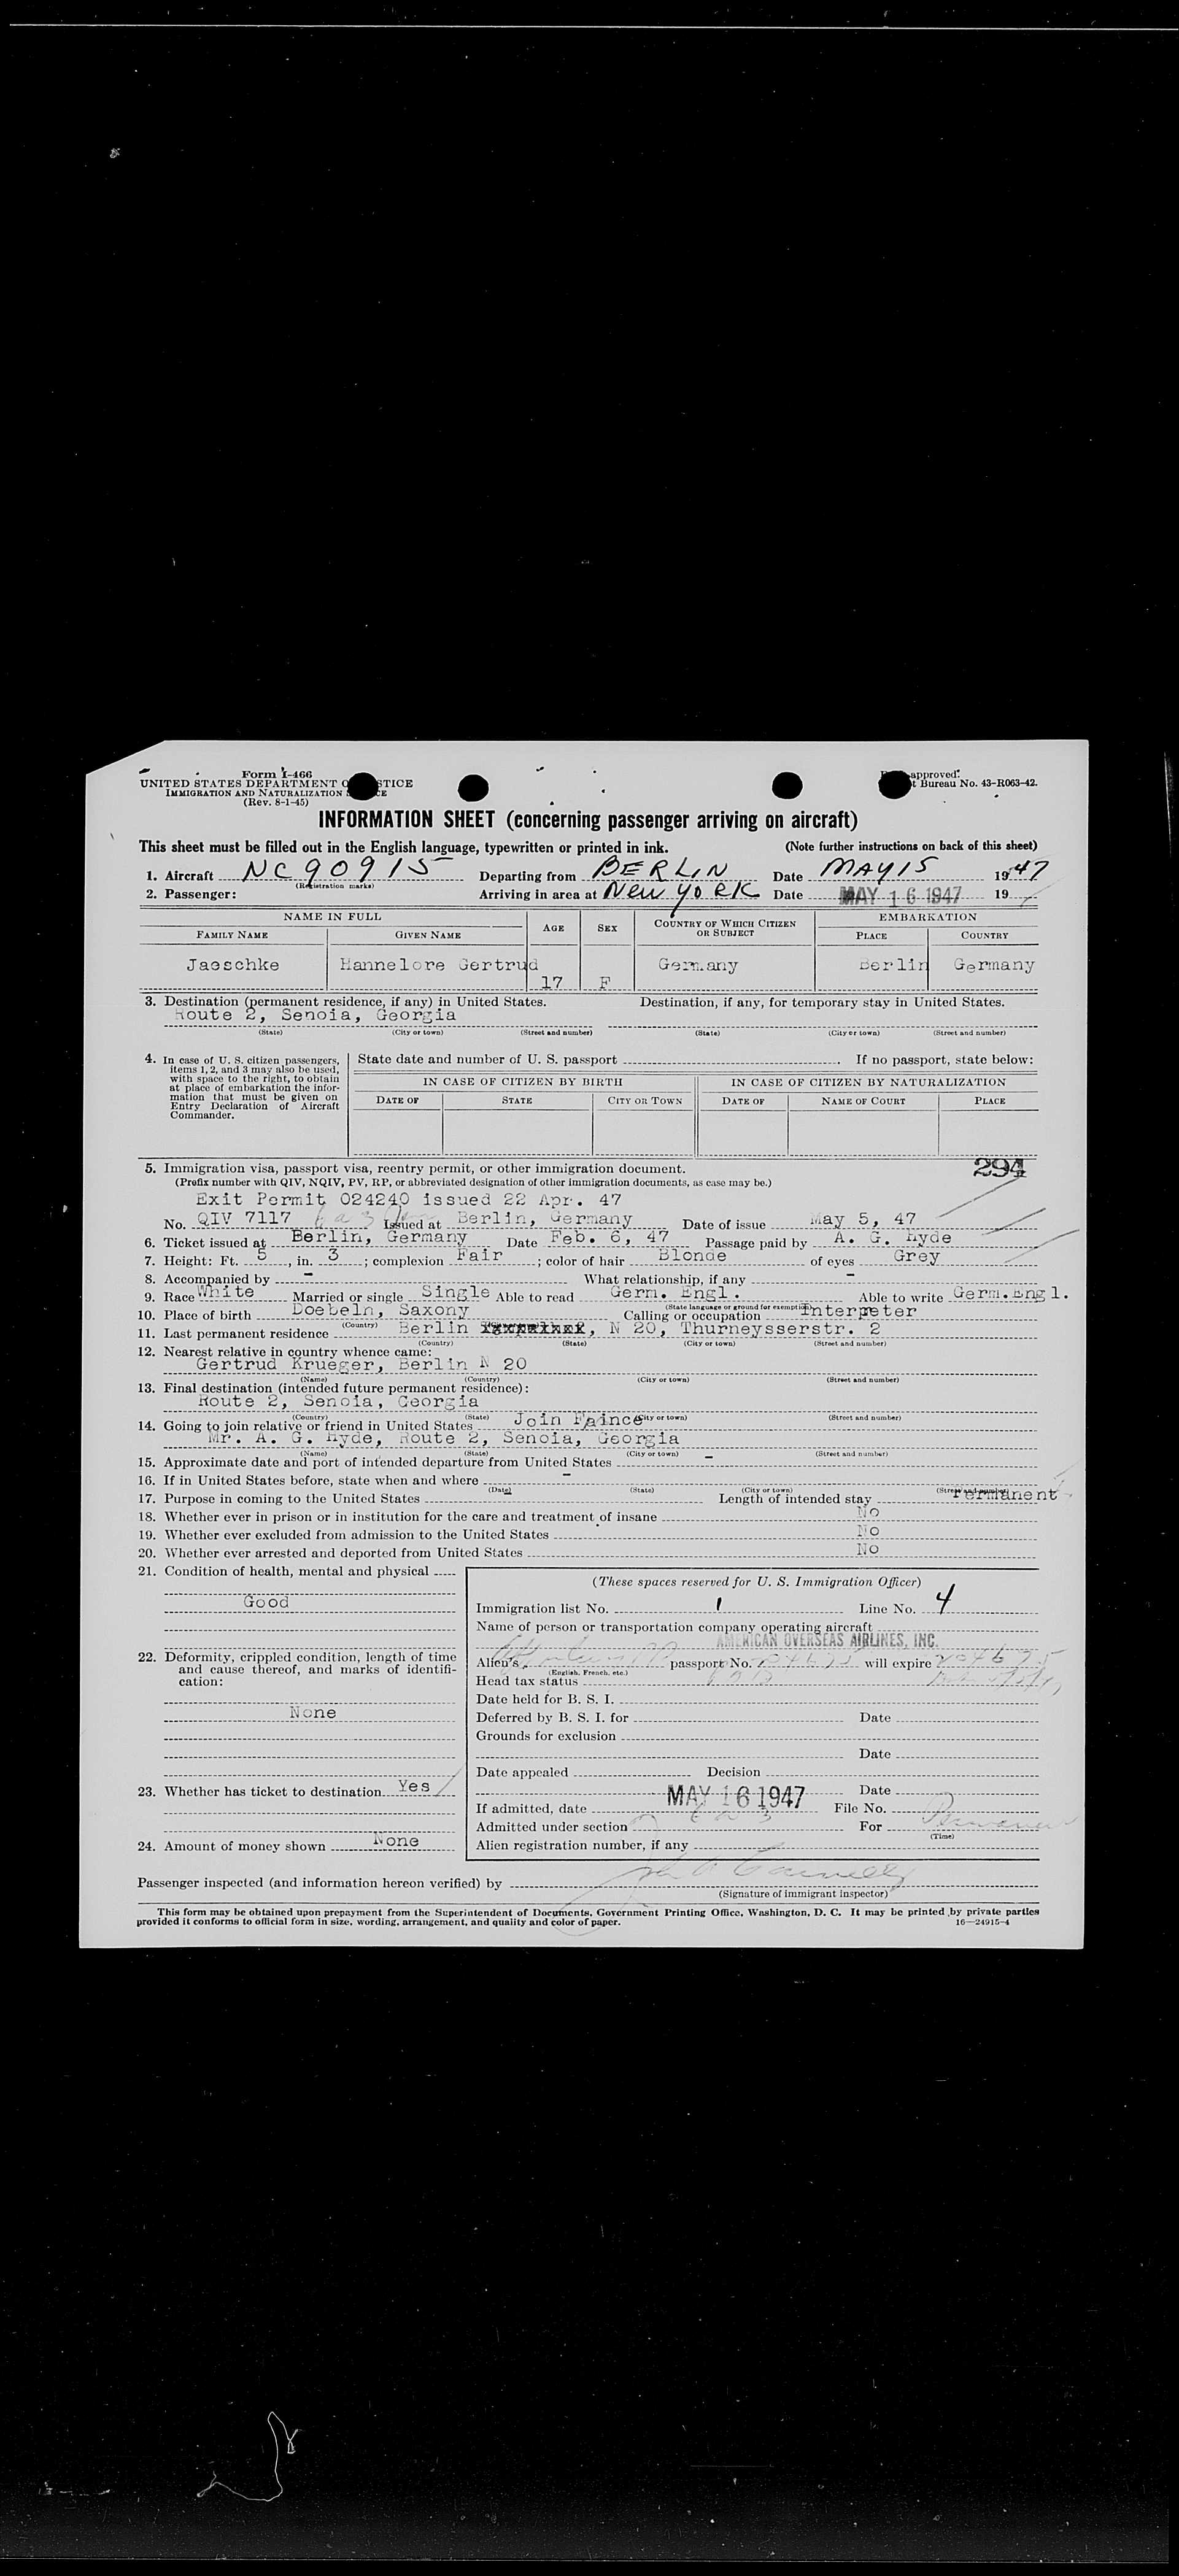 Form I-466
UNITED STATES DEPARTMENT O STICE
IMMIGRATION AND NATURALIZATION S E
(Rev. 8-1-45)
approved.
t Bureau No. 43-R063-42.
INFORMATION SHEET (concerning passenger arriving on aircraft)
This sheet must be filled out in the English language, typewritten or printed in ink. (Note further instructions on back of this sheet)
1. Aircraft NC90915 Departing from BERLIN Date MAY 15 1947
(Registration marks)
2. Passenger: Arriving in area at New YORK Date MAY 16 1947 19
NAME IN FULL AGE SEX COUNTRY OF WHICH CITIZEN OR SUBJECT EMBARKATION
FAMILY NAME GIVEN NAME PLACE COUNTRY
Jaeschke Hannelore Gertrud 17 F Germany Berlin Germany
3. Destination (permanent residence, if any) in United States. Destination, if any, for temporary stay in United States.
Route 2, Senoia, Georgia
(State) (City or town) (Street and number) (State) (City or town) (Street and number)
4. In case of U. S. citizen passengers, items 1, 2, and 3 may also be used, with space to the right, to obtain at place of embarkation the information that must be given on Entry Declaration of Aircraft Commander.
State date and number of U. S. passport If no passport, state below:
IN CASE OF CITIZEN BY BIRTH IN CASE OF CITIZEN BY NATURALIZATION
DATE OF STATE CITY OR TOWN DATE OF NAME OF COURT PLACE
5. Immigration visa, passport visa, reentry permit, or other immigration document. 294
(Prefix number with QIV, NQIV, PV, RP, or abbreviated designation of other immigration documents, as case may be.)
Exit Permit 024240 issued 22 Apr. 47
No. QIV 7117 Issued at Berlin, Germany Date of issue May 5, 47
6. Ticket issued at Berlin, Germany Date Feb. 6, 47 Passage paid by A. G. Hyde
7. Height: Ft. 5, in. 3; complexion Fair; color of hair Blonde of eyes Grey
8. Accompanied by - What relationship, if any -
9. Race White Married or single Single Able to read Germ. Engl. Able to write Germ. Engl.
(State language or ground for exemption)
10. Place of birth Doebeln, Saxony Calling or occupation Interpreter
(Country)
11. Last permanent residence Berlin, N 20, Thurneysserstr. 2
(Country) (State) (City or town) (Street and number)
12. Nearest relative in country whence came:
Gertrud Krueger, Berlin N 20
(Name) (Country) (City or town) (Street and number)
13. Final destination (intended future permanent residence):
Route 2, Senoia, Georgia
(Country) (State) (City or town) (Street and number)
14. Going to join relative or friend in United States Join Faince
Mr. A. G. Hyde, Route 2, Senoia, Georgia
(Name) (State) (City or town) (Street and number)
15. Approximate date and port of intended departure from United States -
16. If in United States before, state when and where -
(Date) (State) (City or town) (Street and number)
17. Purpose in coming to the United States Length of intended stay Permanent
18. Whether ever in prison or in institution for the care and treatment of insane No
19. Whether ever excluded from admission to the United States No
20. Whether ever arrested and deported from United States No
21. Condition of health, mental and physical
Good
22. Deformity, crippled condition, length of time and cause thereof, and marks of identification:
None
23. Whether has ticket to destination Yes
24. Amount of money shown None
(These spaces reserved for U. S. Immigration Officer)
Immigration list No. 1 Line No. 4
Name of person or transportation company operating aircraft
AMERICAN OVERSEAS AIRLINES, INC.
Alien's passport No. will expire
(English, French, etc.)
Head tax status
Date held for B. S. I.
Deferred by B. S. I. for Date
Grounds for exclusion
Date
Date appealed Decision
Date
If admitted, date MAY 16 1947 File No.
Admitted under section For
(Time)
Alien registration number, if any
Passenger inspected (and information hereon verified) by
(Signature of immigrant inspector)
This form may be obtained upon prepayment from the Superintendent of Documents, Government Printing Office, Washington, D. C. It may be printed by private parties
provided it conforms to official form in size, wording, arrangement, and quality and color of paper. 16—24915-4